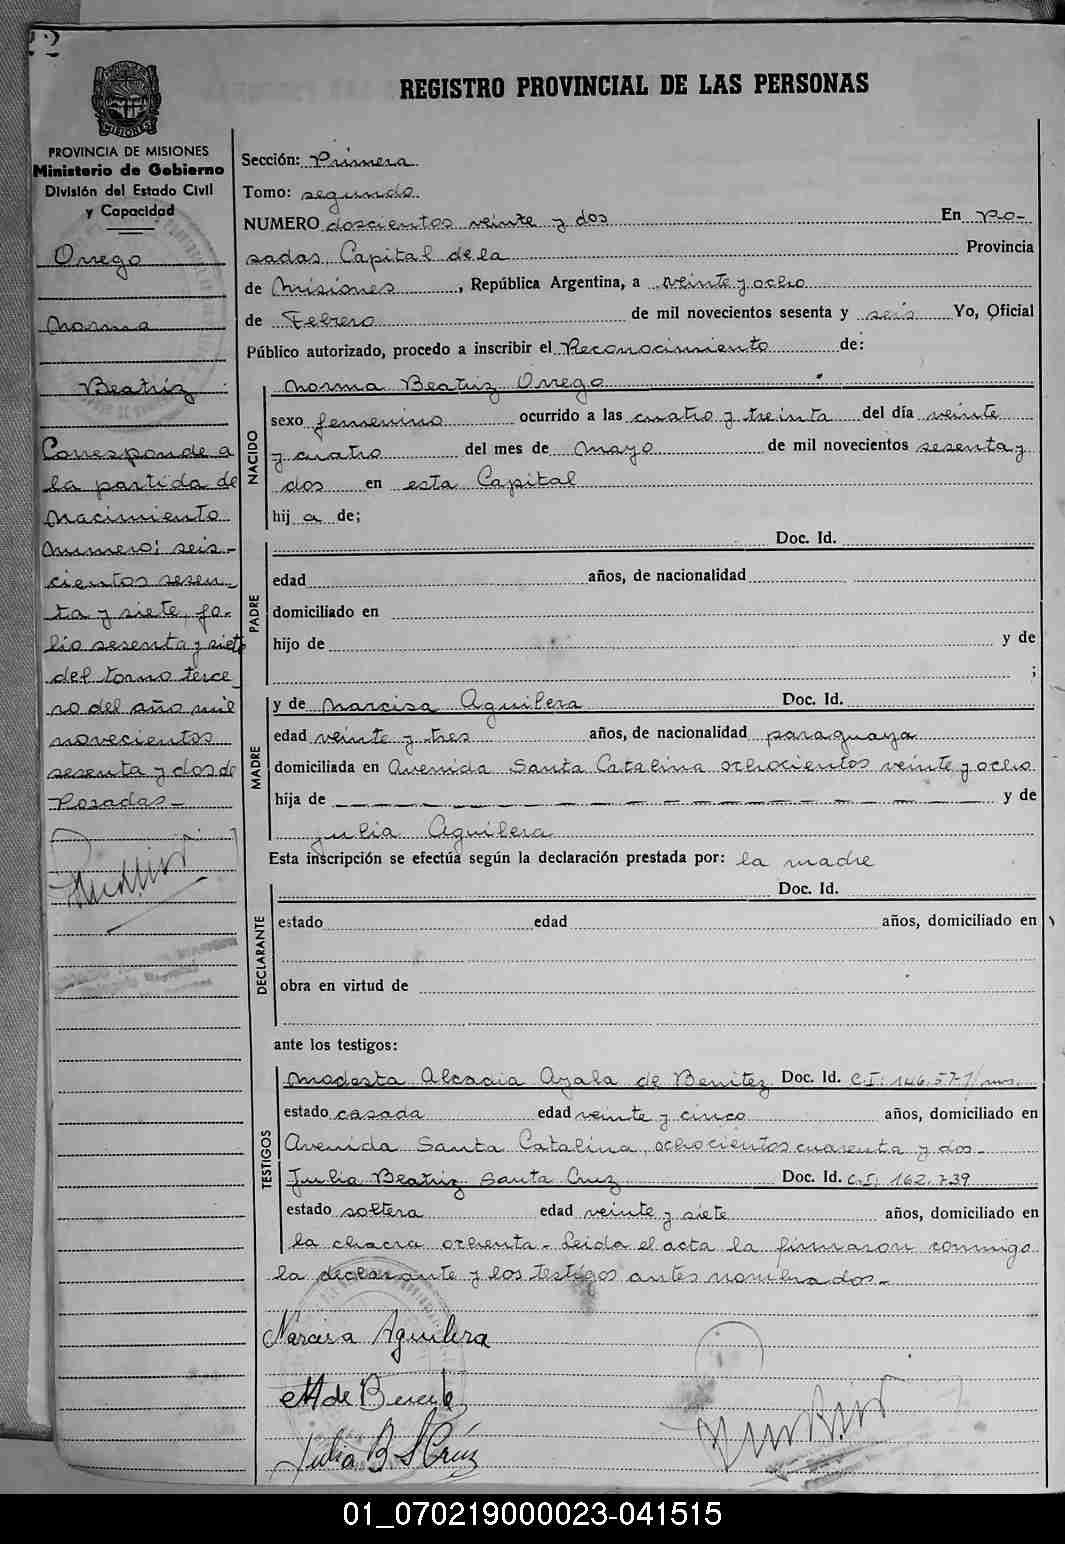 22
MISIONES
REGISTRO PROVINCIAL DE LAS PERSONAS
PROVINCIA DE MISIONES
Ministerio de Gobierno
División del Estado Civil
y Capacidad
Orrego
Norma
Beatriz
Corresponde a
la partida de
Nacimiento
Numero: seis-
cientos sesen-
ta y siete, fo-
lio sesenta y siete
del tomo terce-
ro del año mil
novecientos
sesenta y dos de
Posadas-
Sección: Primera
Tomo: segundo
NUMERO doscientos veinte y dos En Po-
sadas, Capital de la Provincia
de Misiones, República Argentina, a veinte y ocho
de Febrero de mil novecientos sesenta y seis Yo, Oficial
Público autorizado, procedo a inscribir el Reconocimiento de:
NACIDO
Norma Beatriz Orrego
sexo femenino ocurrido a las cuatro y treinta del día veinte
y cuatro del mes de Mayo de mil novecientos sesenta y
dos en esta Capital
hij a de;
PADRE
Doc. Id.
edad años, de nacionalidad
domiciliado en
hijo de y de
;
MADRE
y de Narcisa Aguilera Doc. Id.
edad veinte y tres años, de nacionalidad paraguaya
domiciliada en Avenida Santa Catalina ochocientos veinte y ocho
hija de — — — — — — — — y de
Julia Aguilera
Esta inscripción se efectúa según la declaración prestada por: la madre
DECLARANTE
Doc. Id.
estado edad años, domiciliado en
obra en virtud de
ante los testigos:
TESTIGOS
Modesta Alcadia Ayala de Benitez Doc. Id. C.I: 146.577/mns.
estado casada edad veinte y cinco años, domiciliado en
Avenida Santa Catalina, ochocientos cuarenta y dos-
Julia Beatriz Santa Cruz Doc. Id. C.I: 162.739
estado soltera edad veinte y siete años, domiciliado en
la chacra ochenta- Leida el acta la firmaron conmigo
la declarante y los testigos antes nombrados-
Narcisa Aguilera
Julia B S Crúz
01_070219000023-041515